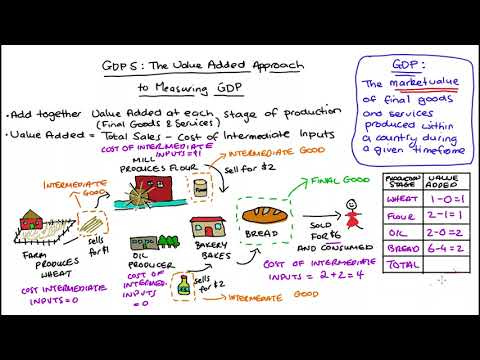 GDP 5: The Value Added Approach
to Measuring GDP
• Add together Value Added at each stage of production
(Final Goods & Services)
• Value Added = Total Sales - Cost of Intermediate Inputs
GDP:
The market value
of final goods
and services
produced within
a country during
a given timeframe
COST OF INTERMEDIATE
INPUTS = $1
MILL
PRODUCES FLOUR
INTERMEDIATE GOOD
sell for $2
INTERMEDIATE
GOOD
sells
for $1
FARM
PRODUCES
WHEAT
COST INTERMEDIATE
INPUTS = 0
OIL
PRODUCER
COST OF
INTERMED.
INPUTS
= 0
sells
for $2
INTERMEDIATE GOOD
BAKERY
BAKES
BREAD
FINAL GOOD
SOLD
FOR $6
AND CONSUMED
COST OF INTERMEDIATE
INPUTS = 2+2=4
PRODUCTION STAGE VALUE ADDED
WHEAT 1-0=1
FLOUR 2-1=1
OIL 2-0=2
BREAD 6-4=2
TOTAL